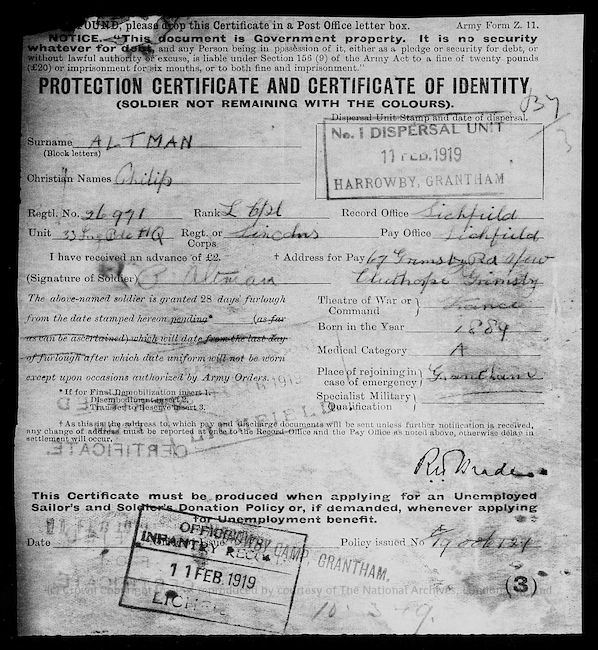 FOUND, please drop this Certificate in a Post Office letter box. Army Form Z. 11.
NOTICE.—"This document is Government property. It is no security
whatever for debt, and any Person being in possession of it, either as a pledge or security for debt, or
without lawful authority or excuse, is liable under Section 156 (9) of the Army Act to a fine of twenty pounds
(£20) or imprisonment for six months, or to both fine and imprisonment."
PROTECTION CERTIFICATE AND CERTIFICATE OF IDENTITY
(SOLDIER NOT REMAINING WITH THE COLOURS).
Dispersal Unit Stamp and date of dispersal.
No. 1 DISPERSAL UNIT
11 FEB. 1919
HARROWBY, GRANTHAM
Surname ALTMAN
(Block letters)
Christian Names Philip
Regtl. No. 26971 Rank L Cpl Record Office Lichfield
Unit HQ Regt. or Corps Lincolns Pay Office Lichfield
I have received an advance of £2. † Address for Pay 67 Grimsby Rd New
(Signature of Soldier) P. Altman Cleethorpe Grimsby
The above-named soldier is granted 28 days' furlough
from the date stamped hereon pending* (as far
as can be ascertained) which will date from the last day
of furlough after which date uniform will not be worn
except upon occasions authorized by Army Orders.
Theatre of War or Command France
Born in the Year 1889
Medical Category A
Place of rejoining in case of emergency Grantham
Specialist Military Qualification
* If for Final Demobilization insert 1.
Disembodiment insert 2.
Transfer to Reserve insert 3.
† As this is the address to which pay and discharge documents will be sent unless further notification is received,
any change of address must be reported at once to the Record Office and the Pay Office as noted above, otherwise delay in
settlement will occur.
CERTIFICATE.
This Certificate must be produced when applying for an Unemployed
Sailor's and Soldier's Donation Policy or, if demanded, whenever applying
for Unemployment benefit.
Date Policy issued No
OFFICE
INFANTRY RECORD
11 FEB 1919
HARROWBY CAMP, GRANTHAM.
(3)
(c) Crown Copyright reproduced by courtesy of The National Archives, London, England